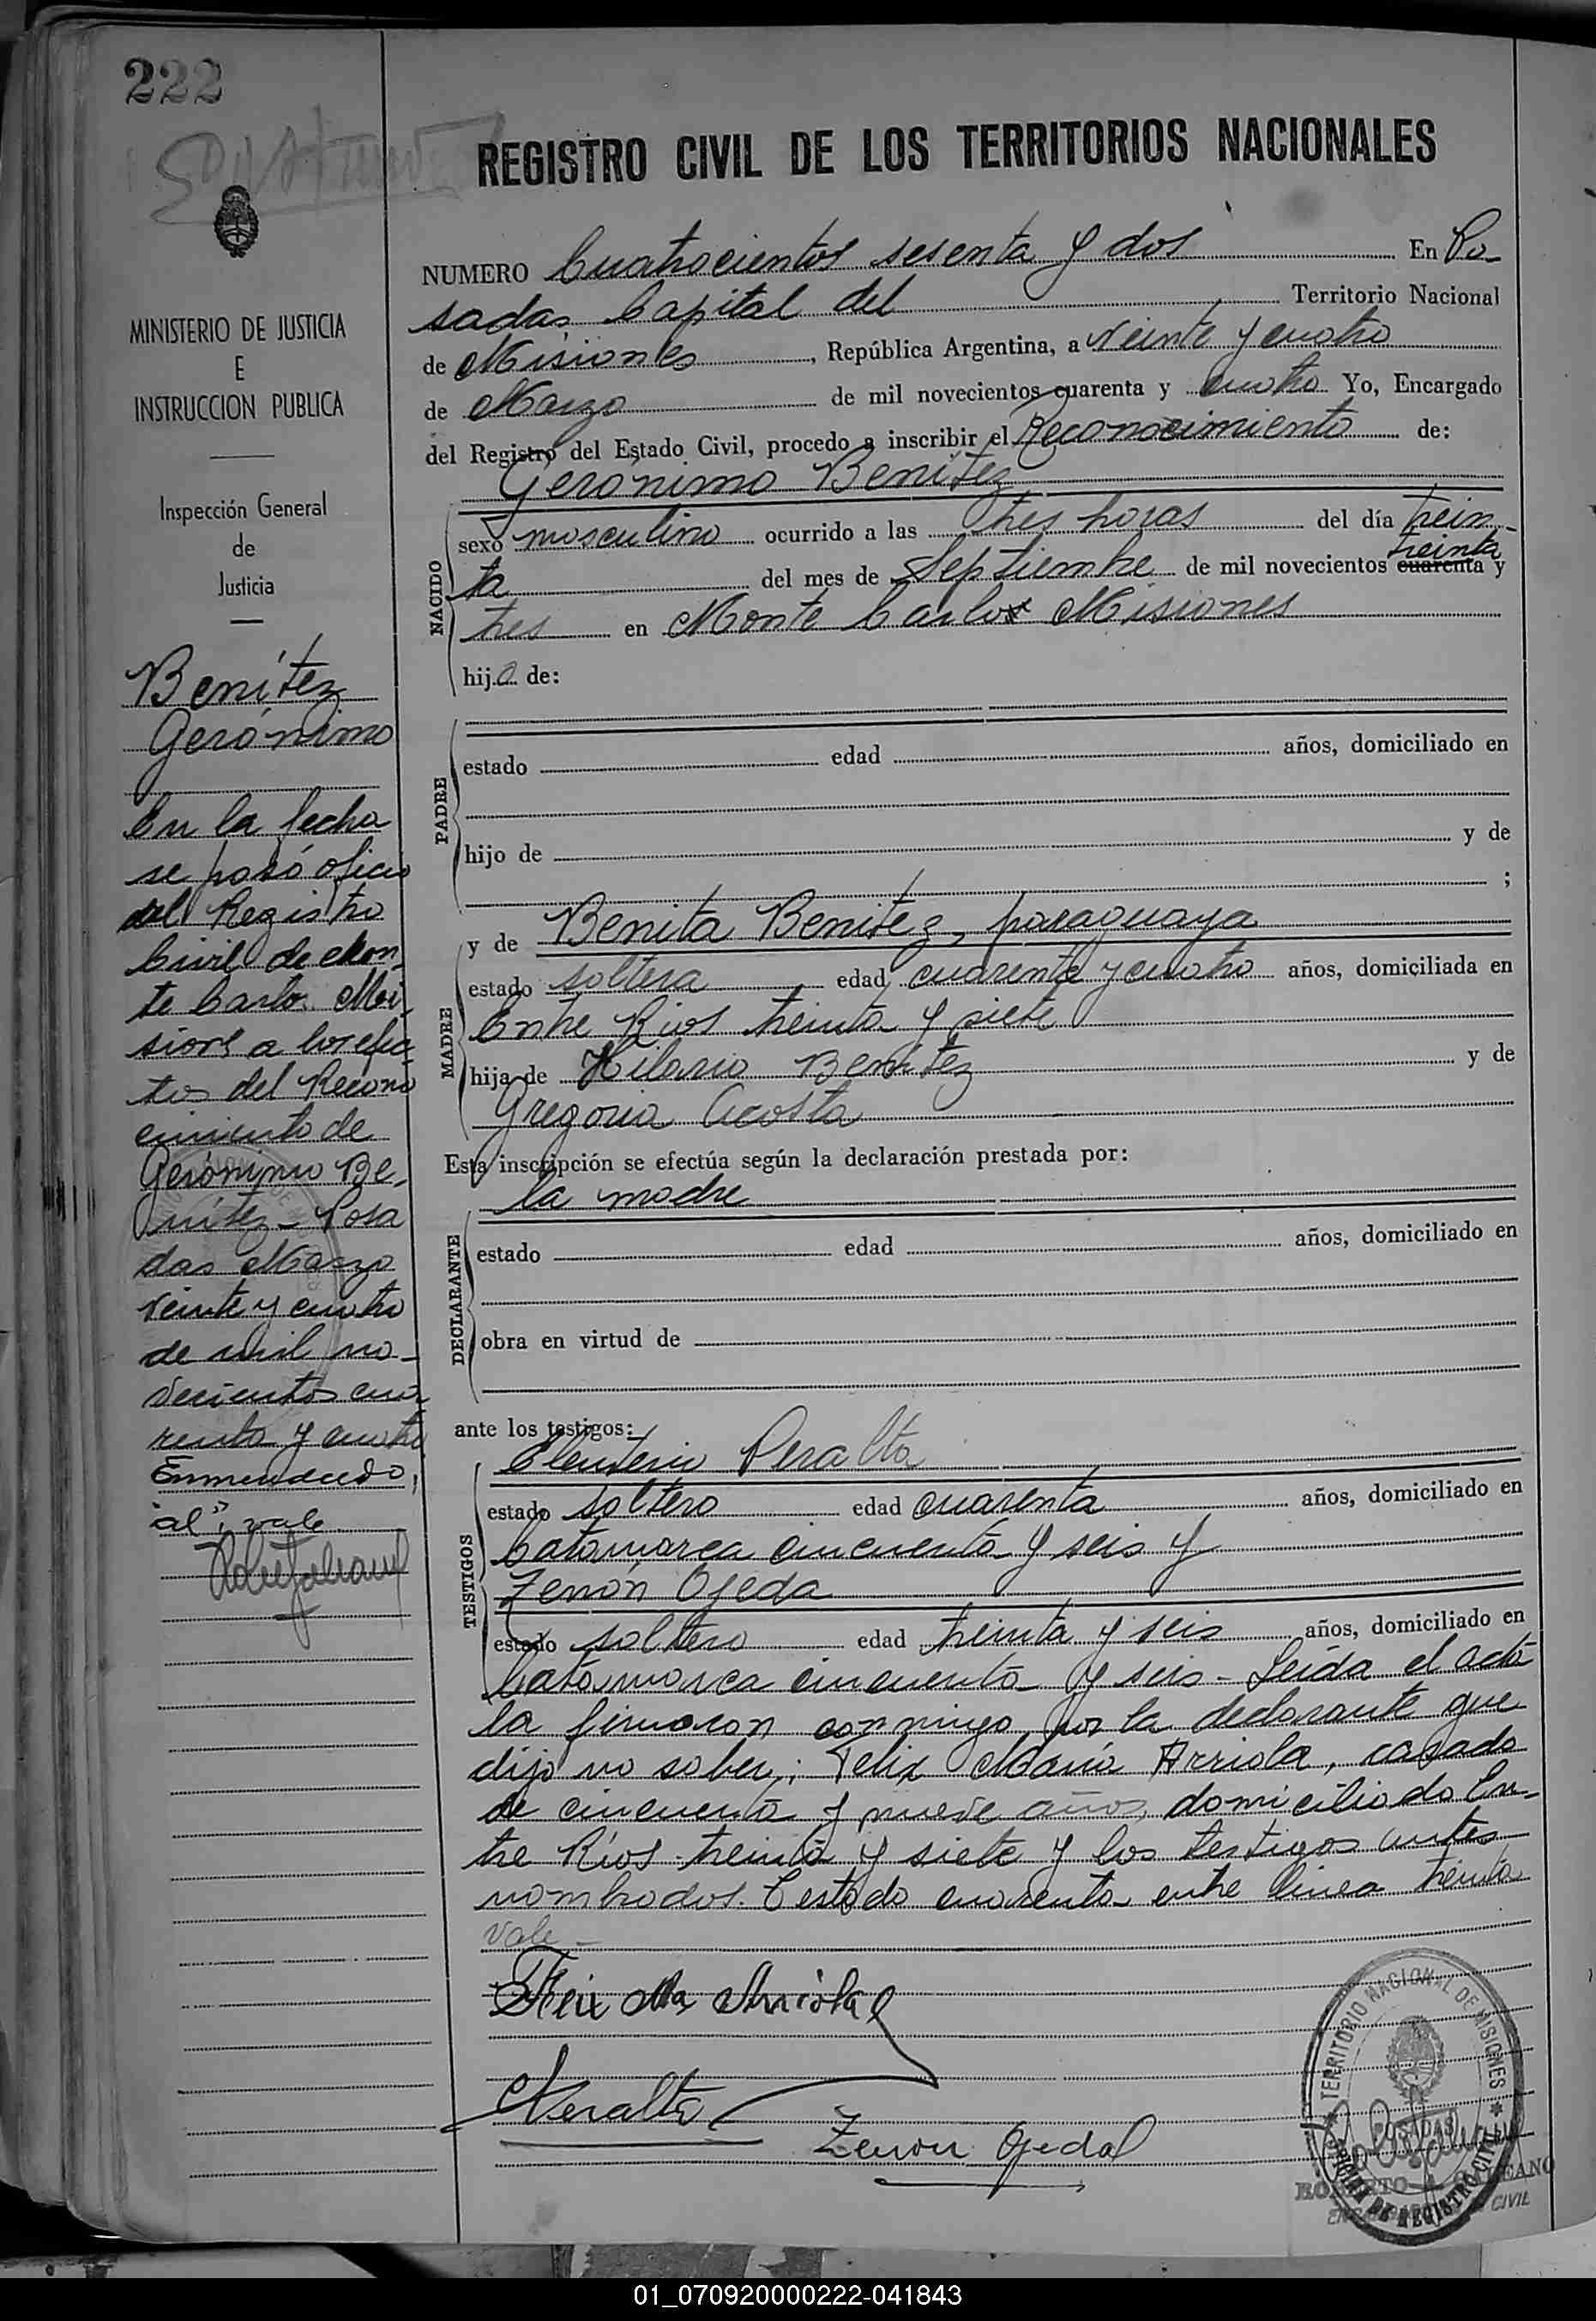 222
REGISTRO CIVIL DE LOS TERRITORIOS NACIONALES
MINISTERIO DE JUSTICIA
E
INSTRUCCION PUBLICA
Inspección General
de
Justicia
Benítez
Gerónimo
En la fecha
se pasó oficio
al Registro
Civil de Mon-
te Carlo Mi-
siones a los efec
tos del Recono
cimiento de
Gerónimo Be-
nítez - Posa
das Marzo
veinte y cuatro
de mil no-
vecientos cua
renta y cuatro
Enmendado,
"al", vale
NUMERO Cuatrocientos sesenta y dos En Po-
sadas Capital del Territorio Nacional
de Misiones, República Argentina, a veinte y cuatro
de Marzo de mil novecientos cuarenta y cuatro Yo, Encargado
del Registro del Estado Civil, procedo a inscribir el Reconocimiento de:
Gerónimo Benítez
NACIDO
sexo masculino ocurrido a las tres horas del día trein-
treinta
ta del mes de Septiembre de mil novecientos cuarenta y
tres en Monte Carlo Misiones
hijo de:
PADRE
estado edad años, domiciliado en
hijo de y de
;
MADRE
y de Benita Benitez, paraguaya
estado soltera edad cuarenta y cuatro años, domiciliada en
Entre Rios treinta y siete
hija de Hilario Benitez y de
Gregoria Acosta
Esta inscripción se efectúa según la declaración prestada por:
la madre
DECLARANTE
estado edad años, domiciliado en
obra en virtud de
ante los testigos:
TESTIGOS
Eleuterio Peralta
estado soltero edad cuarenta años, domiciliado en
Catamarca cincuenta y seis y
Zenón Ojeda
estado soltero edad treinta y seis años, domiciliado en
Catamarca cincuenta y seis - Leída el acta
la firmaron conmigo, por la declarante que
dijo no saber; Felix María Arriola, casado
de cincuenta y nueve años, domiciliado En-
tre Ríos treinta y siete y los testigos antes
nombrados. Testado cuarenta entre linea treinta
vale -
Felix Ma Arriola
EPeralta
Zenon Ojeda
TERRITORIO NACIONAL DE MISIONES
POSADAS
OFICINA DE REGISTRO CIVIL
01_070920000222-041843